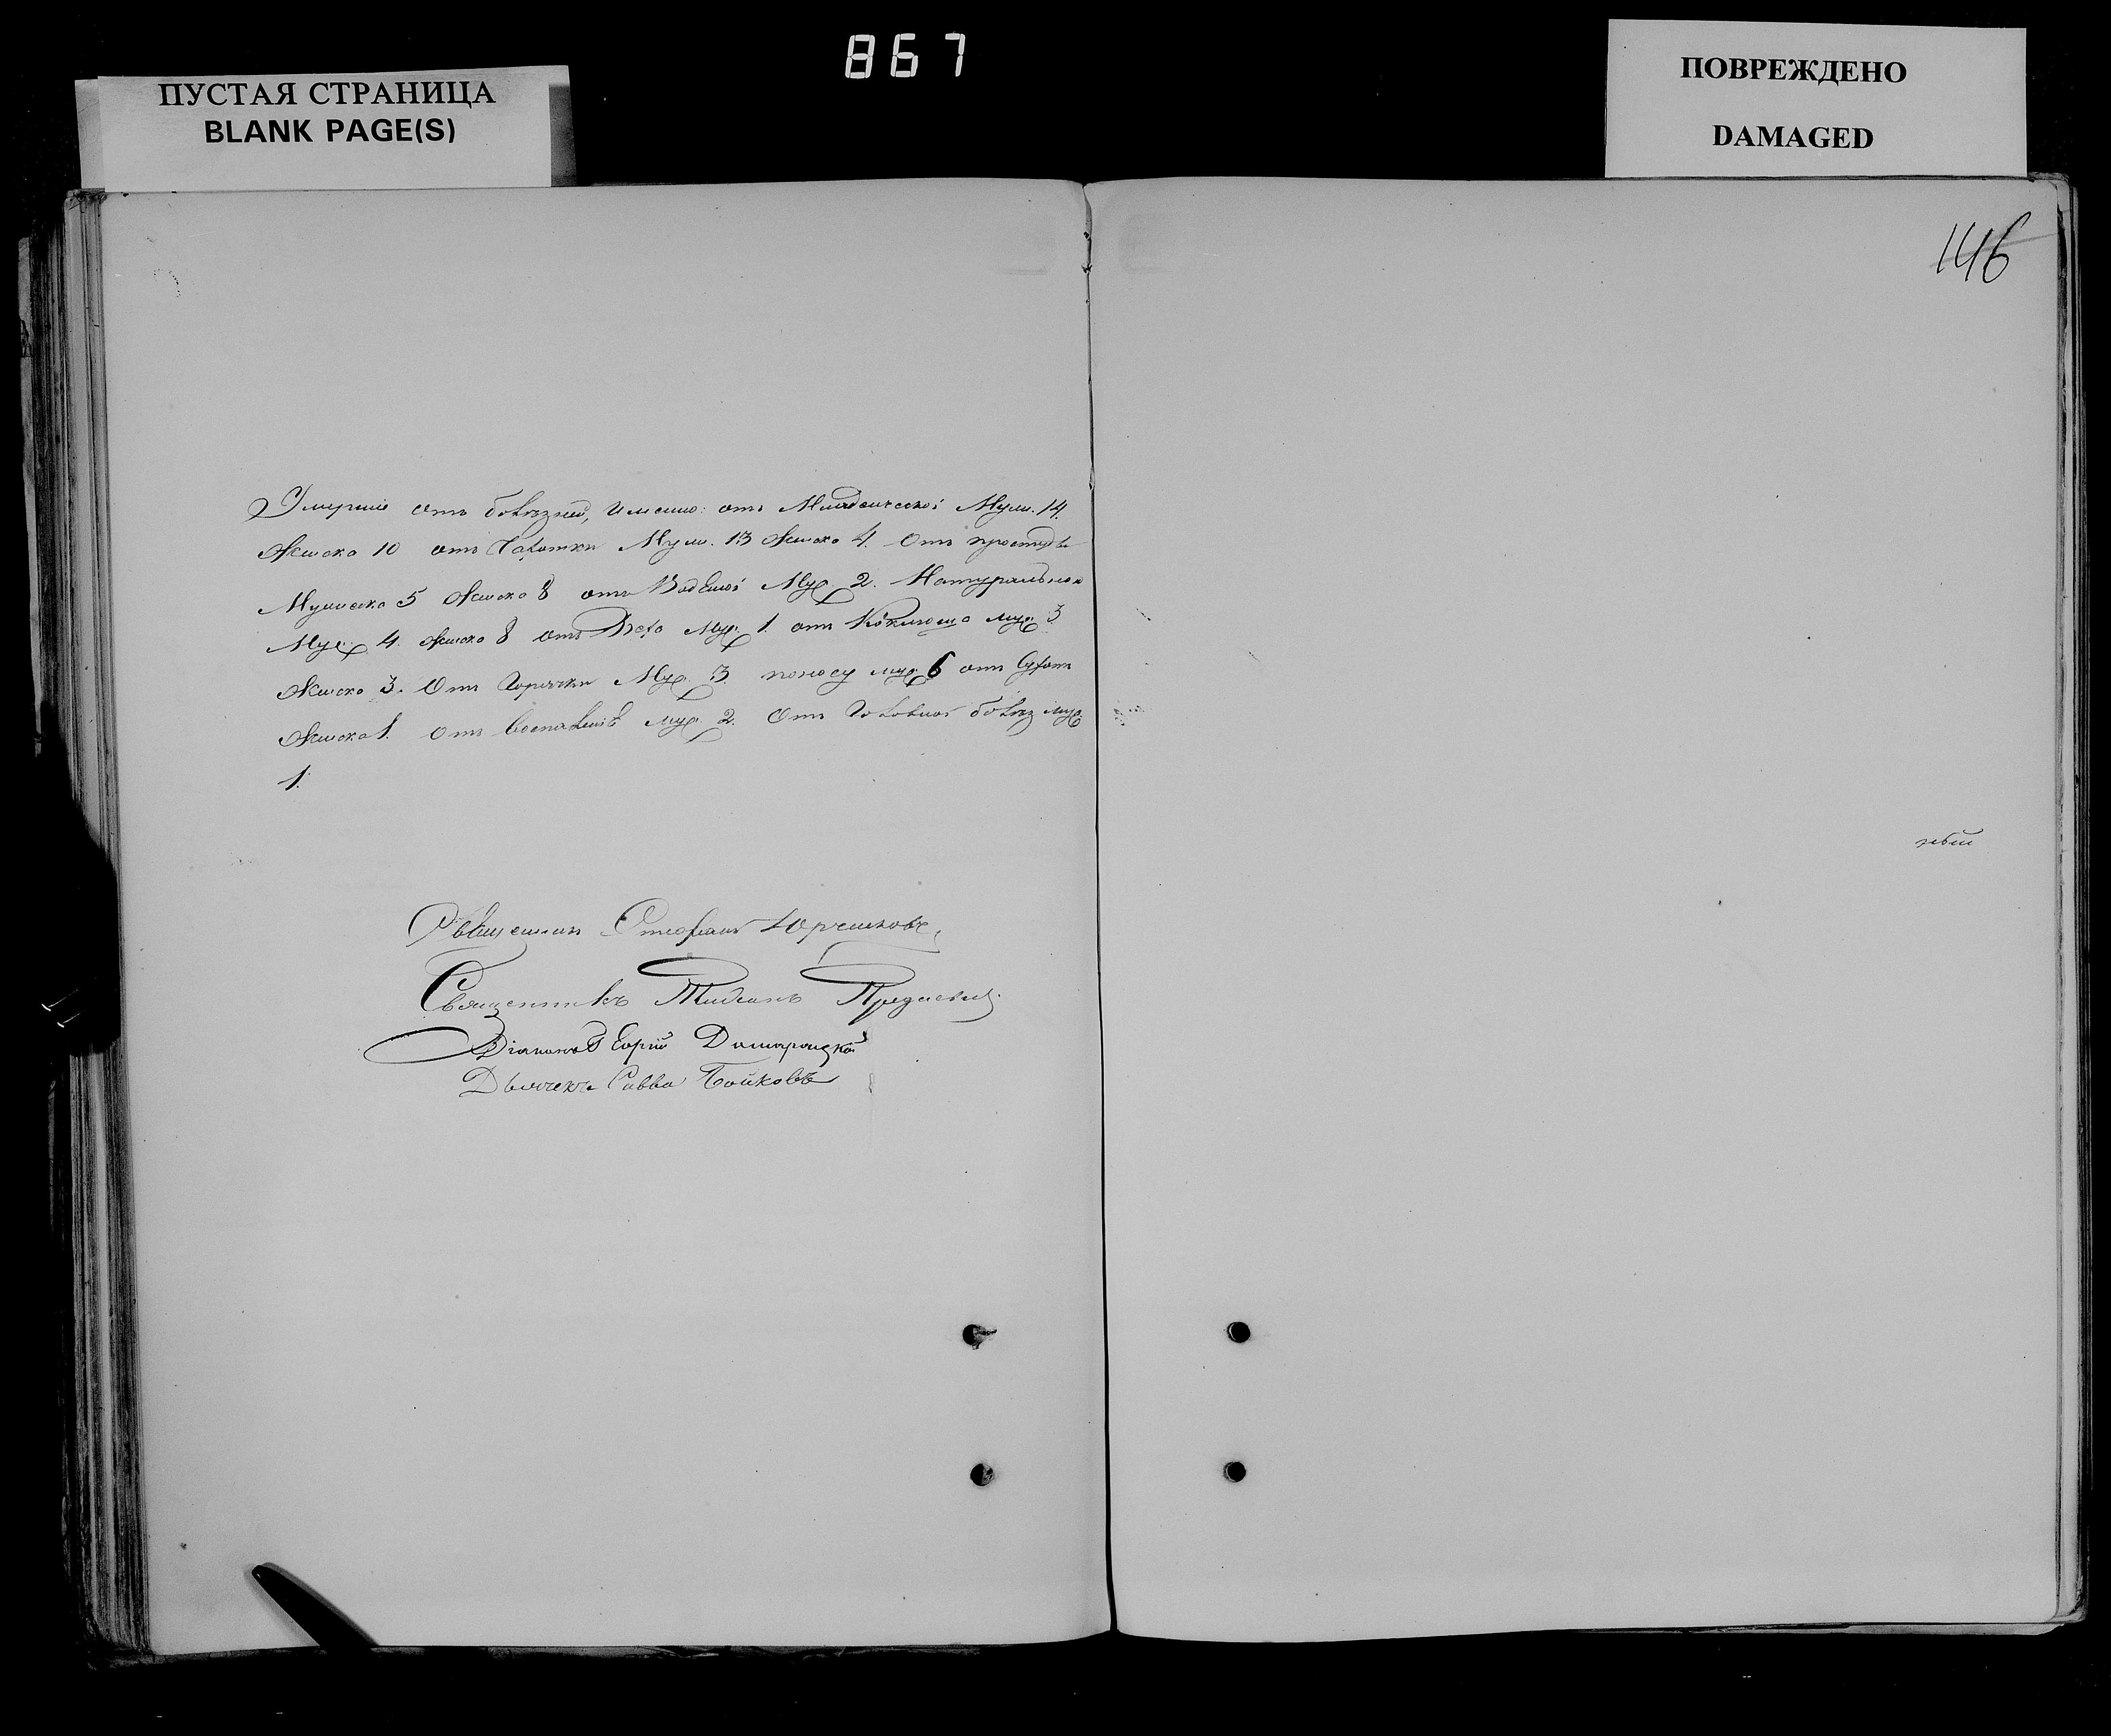 867
ПУСТАЯ СТРАНИЦА
BLANK PAGE(S)
ПОВРЕЖДЕНО
DAMAGED
146
Умершіе отъ болѣзней, именно: отъ Младенческой Муж. 14.
Женска 10 отъ Чахотки Муж. 13 Женска 4. Отъ простуды
Мужеска 5 Женска 8 отъ Водяной Муж. 2. Натуральною
Муж. 4. Женска 8 отъ Муж. 1. отъ Коклюша муж. 3
Женска 3. Отъ Горячки Муж. 3. поносу муж. 6 отъ Сухотъ
Женска 1. Отъ воспаленія муж. 2. Отъ Головной болѣз муж.
1.
ный
Священникъ Стефанъ
Священникъ
Діаконъ Георгій
Дьячекъ Савва Бойковъ